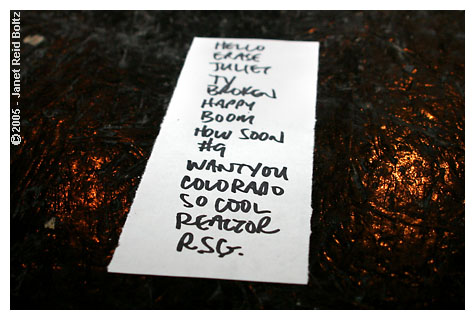 © 2005 - Janet Reid Boltz
HELLO
ERASE
JULIET
TV
BROKEN
HAPPY
BOOM
HOW SOON
#9
WANT YOU
COLORADO
SO COOL
REACTOR
RSG.